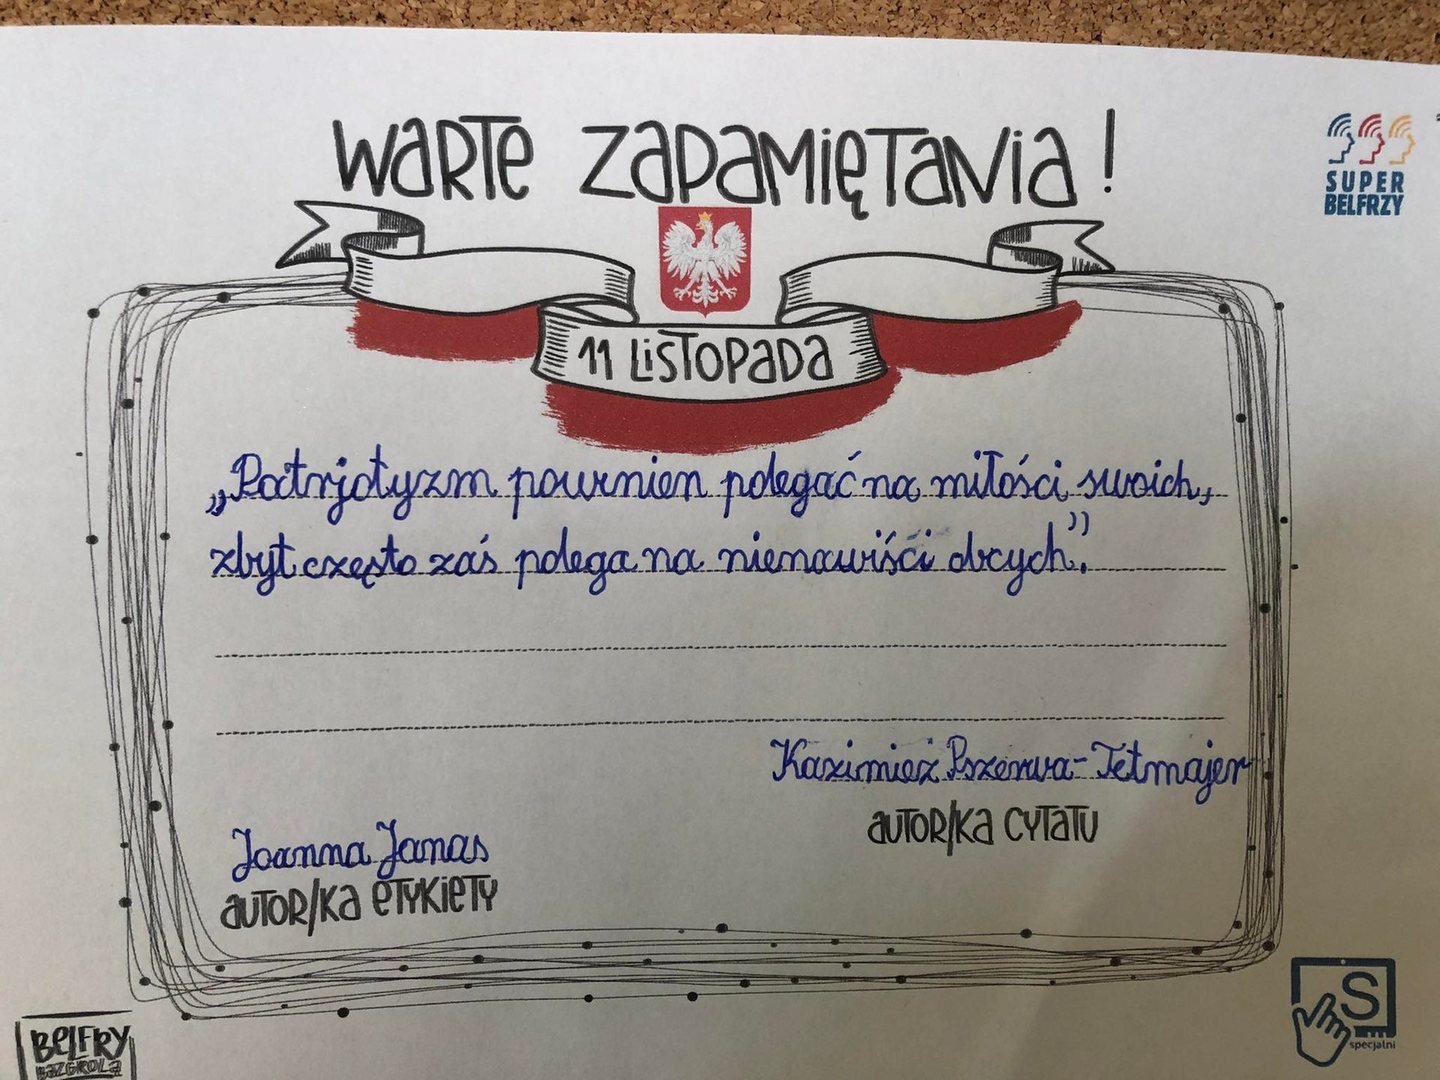 WARTE ZAPAMIĘTANIA!
SUPER
BELFRZY
11 LISTOPADA
„Patrjotyzm powinien polegać na miłości swoich,
zbyt często zaś polega na nienawiści obcych.”
Kazimierz Pszerwa-Tetmajer
AUTOR/KA CYTATU
Joanna Janas
AUTOR/KA ETYKIETY
BELFRY
BAZGROLĄ
S
specjalni